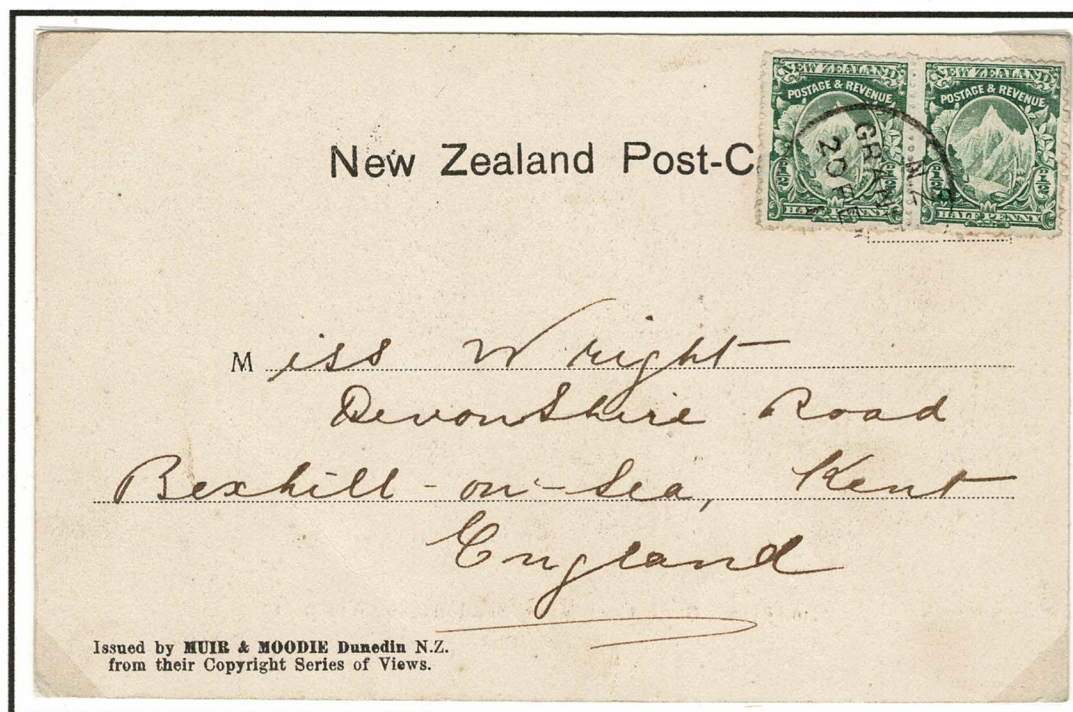 New Zealand Post-C
NEW ZEALAND
POSTAGE & REVENUE
1/2
1/2
HALF PENNY
NEW ZEALAND
POSTAGE & REVENUE
1/2
1/2
HALF PENNY
N.Z
20 FE
Miss Wright
Devonshire Road
Bexhill-on-Sea, Kent
England
Issued by MUIR & MOODIE Dunedin N.Z.
from their Copyright Series of Views.